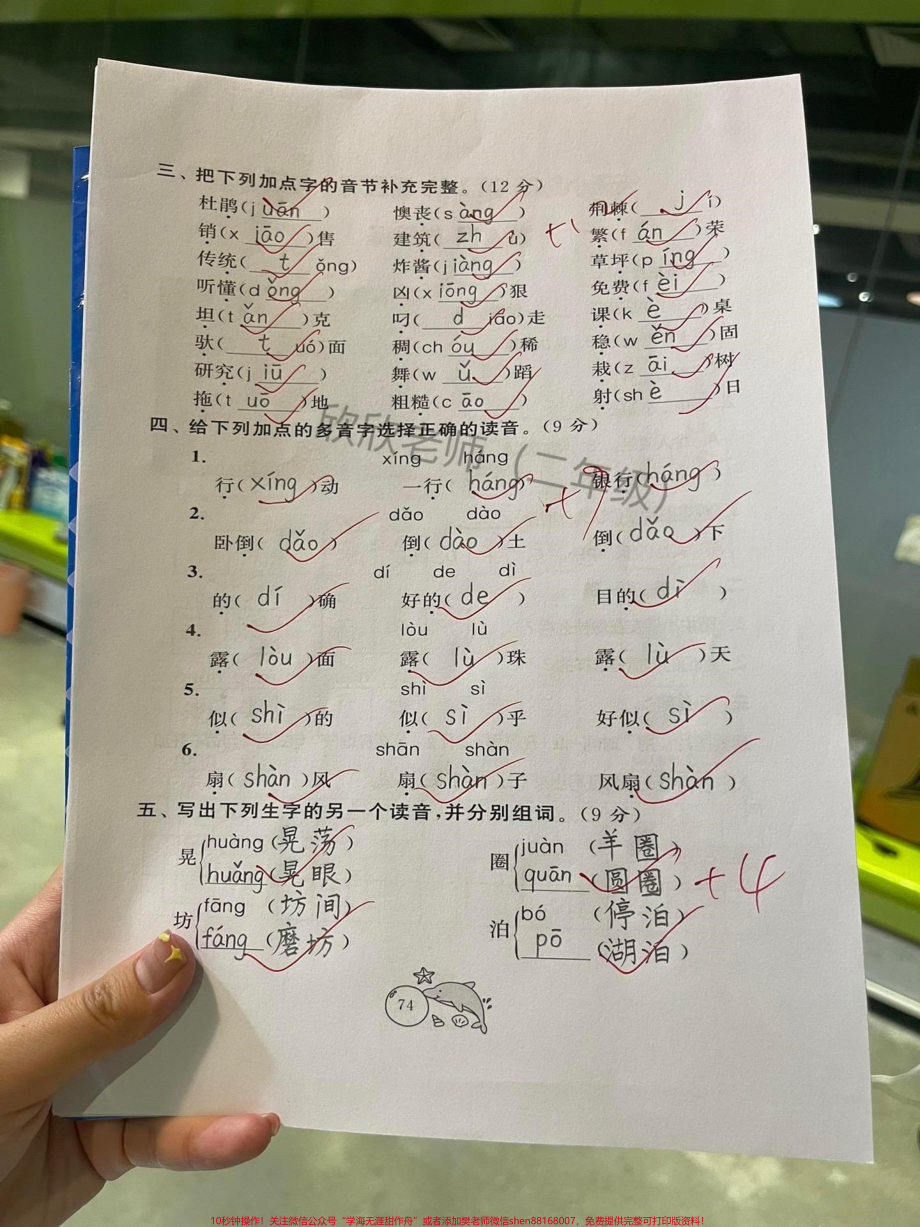 三、把下列加点字的音节补充完整。(12 分)
杜鹃(juān) 懊丧(sàng) 荆棘(jí)
销(xiāo)售 建筑(zhù) 繁(fán)荣
传统(tǒng) 炸酱(jiàng) 草坪(píng)
听懂(dǒng) 凶(xiōng)狠 免费(fèi)
坦(tǎn)克 叼(diāo)走 课(kè)桌
驮(tuó)面 稠(chóu)稀 稳(wěn)固
研究(jiū) 舞(wǔ)蹈 栽(zāi)树
拖(tuō)地 粗糙(cāo) 射(shè)日
+1
四、给下列加点的多音字选择正确的读音。(9 分)
欣欣老师(二年级)
1. xíng háng
行(xíng)动 一行(háng) 银行(háng)
+9
2. dǎo dào
卧倒(dǎo) 倒(dào)土 倒(dǎo)下
3. dí de dì
的(dí)确 好的(de) 目的(dì)
4. lòu lù
露(lòu)面 露(lù)珠 露(lù)天
5. shì sì
似(shì)的 似(sì)乎 好似(sì)
6. shān shàn
扇(shàn)风 扇(shàn)子 风扇(shàn)
五、写出下列生字的另一个读音,并分别组词。(9 分)
晃 huàng(晃荡) 圈 juàn(羊圈)
huǎng(晃眼) quān(圆圈) +4
坊 fāng(坊间) 泊 bó(停泊)
fáng(磨坊) pō(湖泊)
74
10秒钟操作!关注微信公众号“学海无涯甜作舟”或者添加樊老师微信shen88168007,免费提供完整可打印版资料!